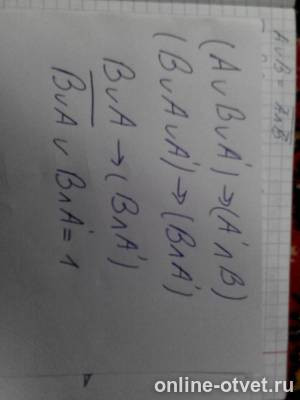 (A ∨ B ∨ A') → (A' ∧ B)
(B ∨ A ∨ A') → (B ∧ A')
B ∨ A → (B ∧ A')
B̅ ̅∨̅ ̅A̅ ∨ B ∧ A' = 1
online-otvet.ru